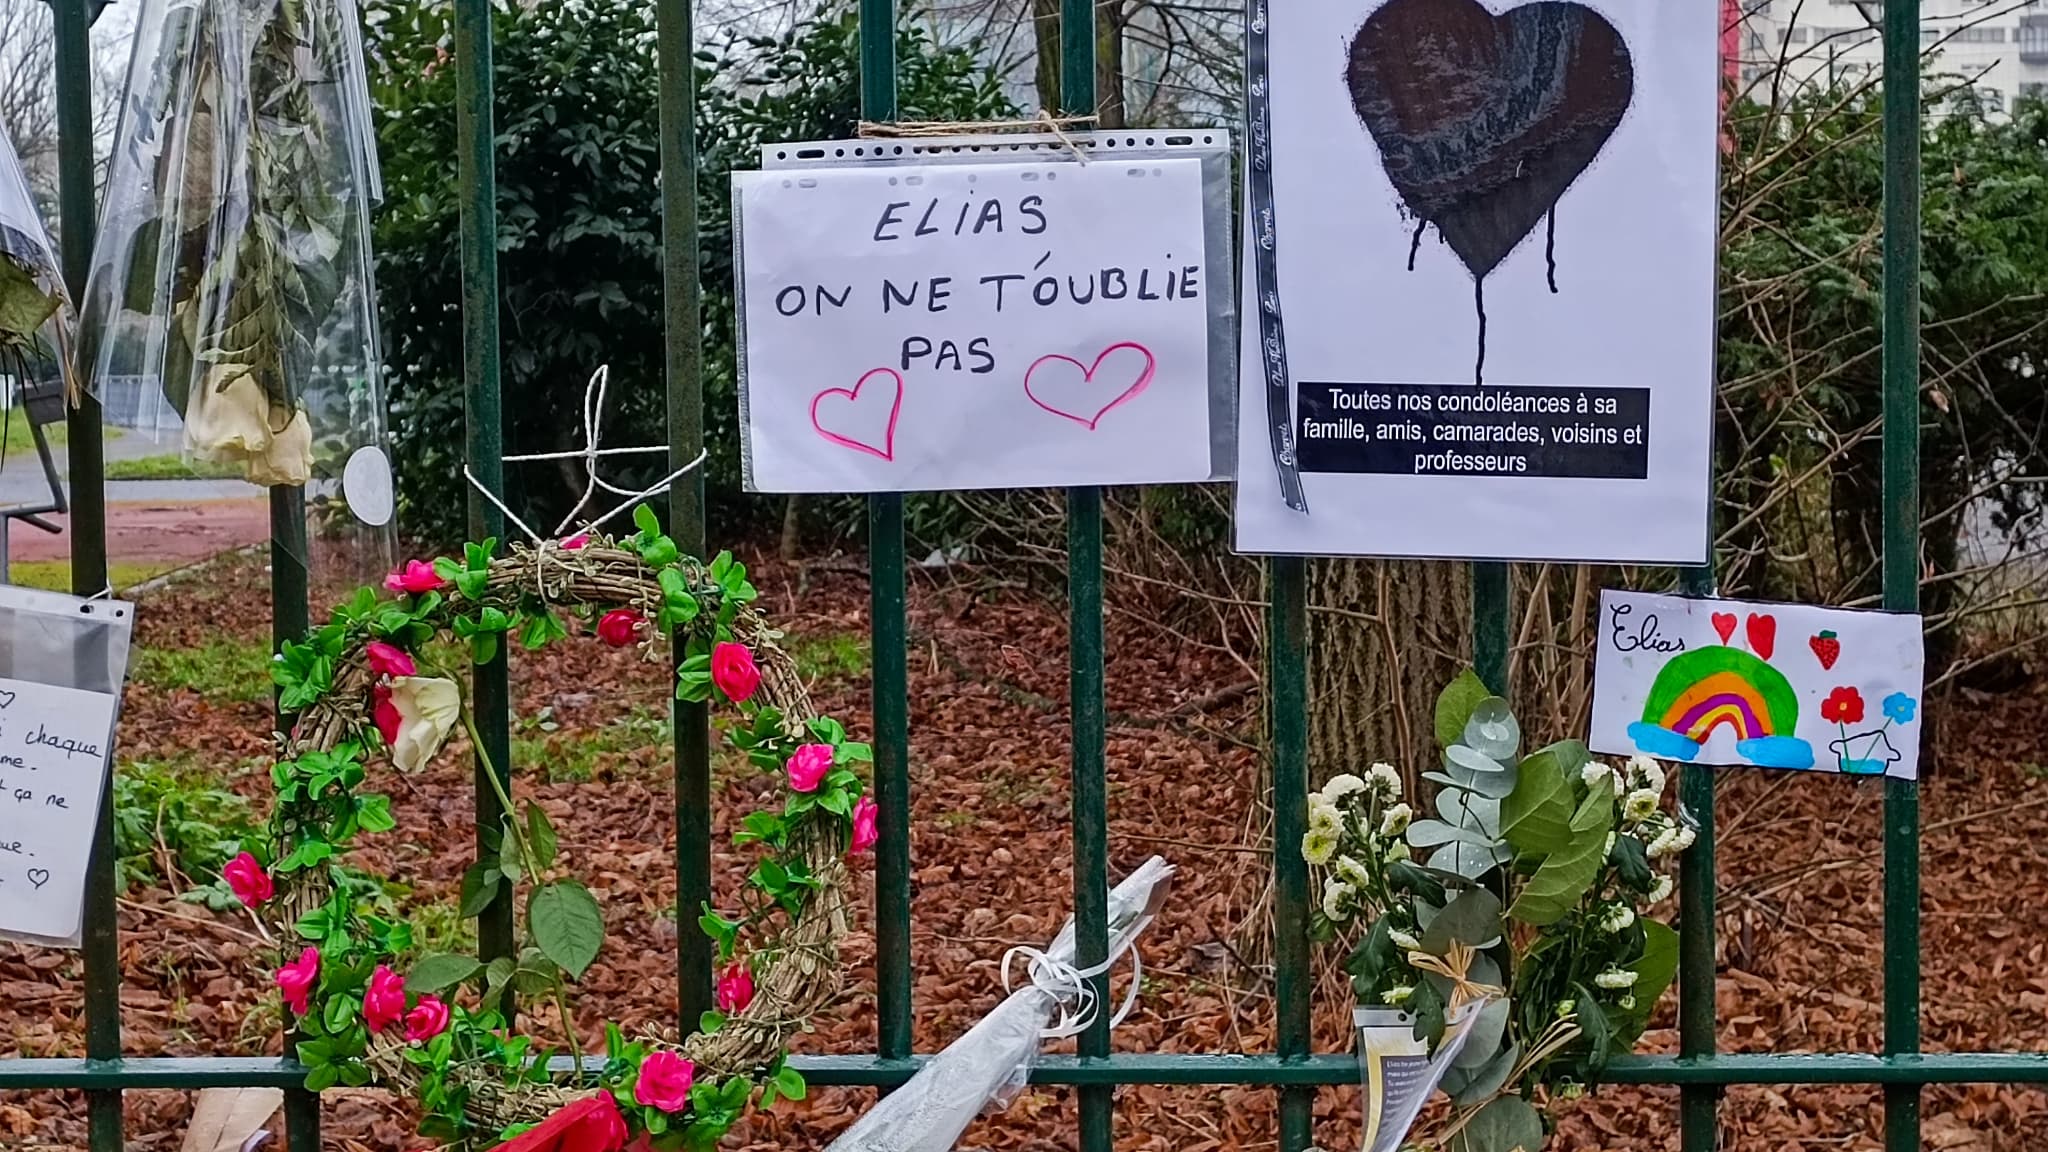 ELIAS
ON NE T'OUBLIE
PAS
Toutes nos condoléances à sa
famille, amis, camarades, voisins et
professeurs
Elias
chaque
ça ne